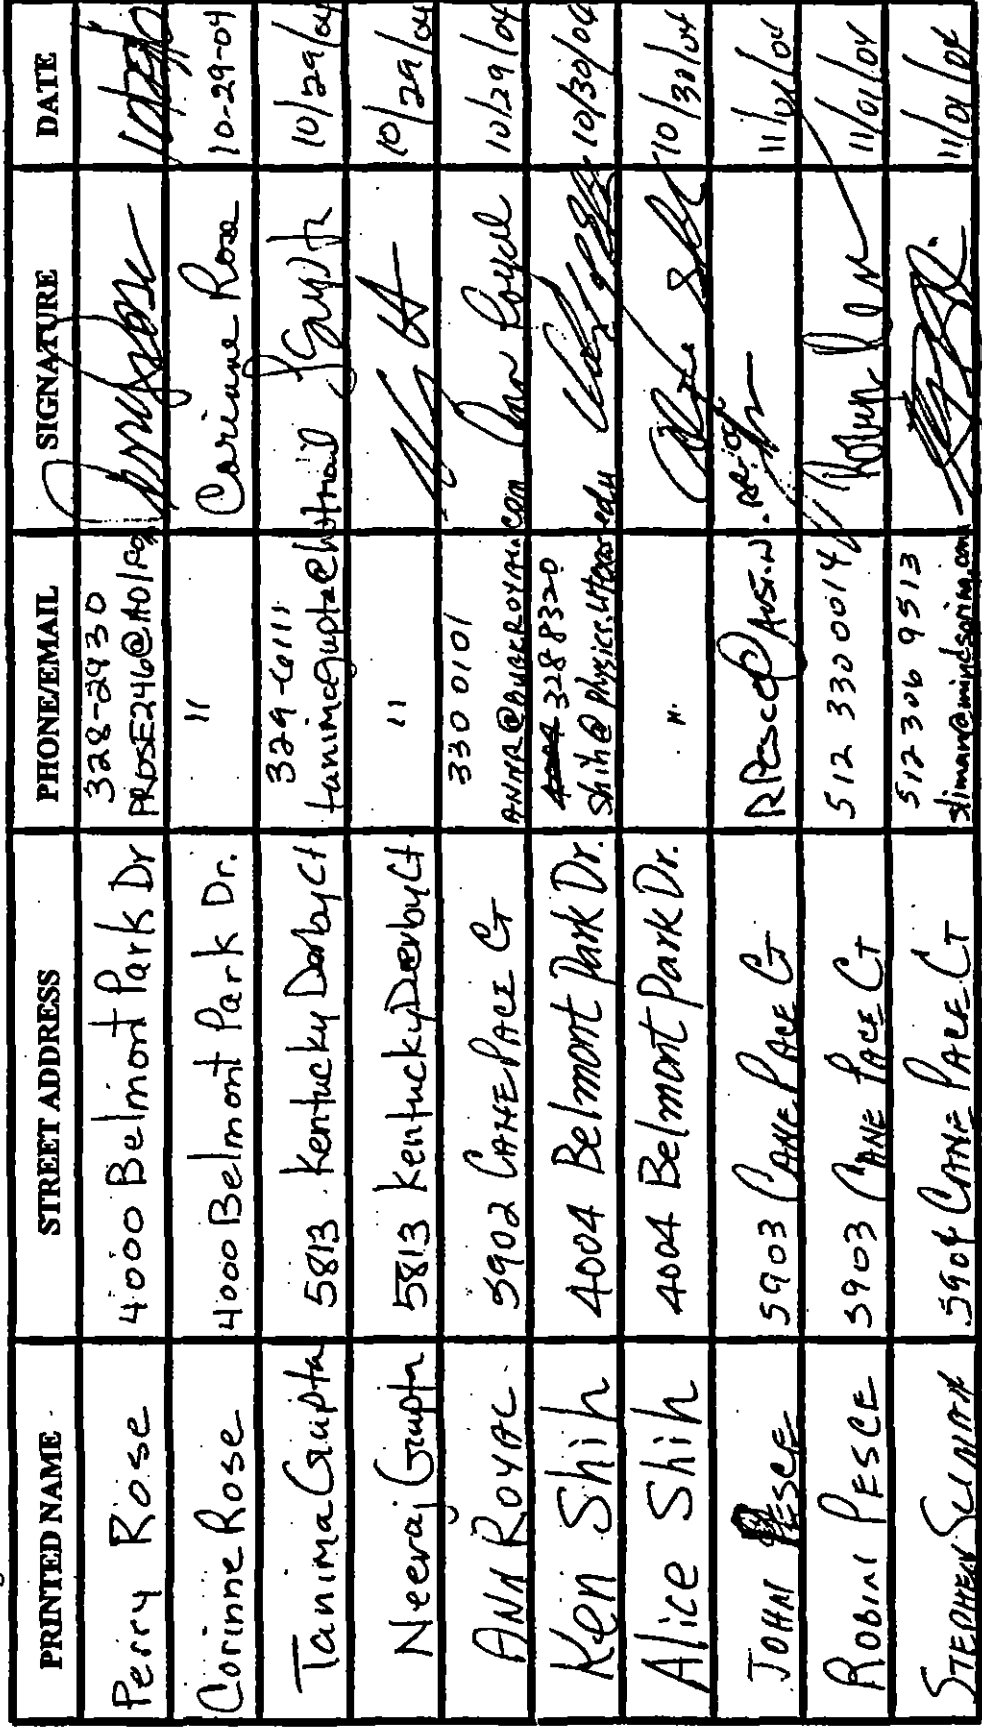 PRINTED NAME STREET ADDRESS PHONE/EMAIL SIGNATURE DATE
Perry Rose 4000 Belmont Park Dr 328-2930
PROSE246@AOL
Corinne Rose 4000 Belmont Park Dr. " Corinne Rose 10-29-04
Tanima Gupta 5813 Kentucky Derby Ct 329-6111 TGupta 10/29/04
tanimagupta@hotmail
Neeraj Gupta 5813 Kentucky Derby Ct " 10/29/04
ANN ROYAL 5902 CANE PACE CT 330 0101 Ann Royal 10/29/04
Ken Shih 4004 Belmont Park Dr. 328 8320 10/30/04
Shih@physics.utexas.edu
Alice Shih 4004 Belmont Park Dr. " Alice Shih 10/30/04
JOHN PESCE 5903 CANE PACE CT RPesce@Austin.rr. 11/01/04
ROBIN PESCE 5903 CANE PACE CT 512 330 0014 Robin Pesce 11/01/04
STEPHEN SLIMAN 5904 CANE PACE CT 512 306 9513 11/01/04
sliman@mindspring.com